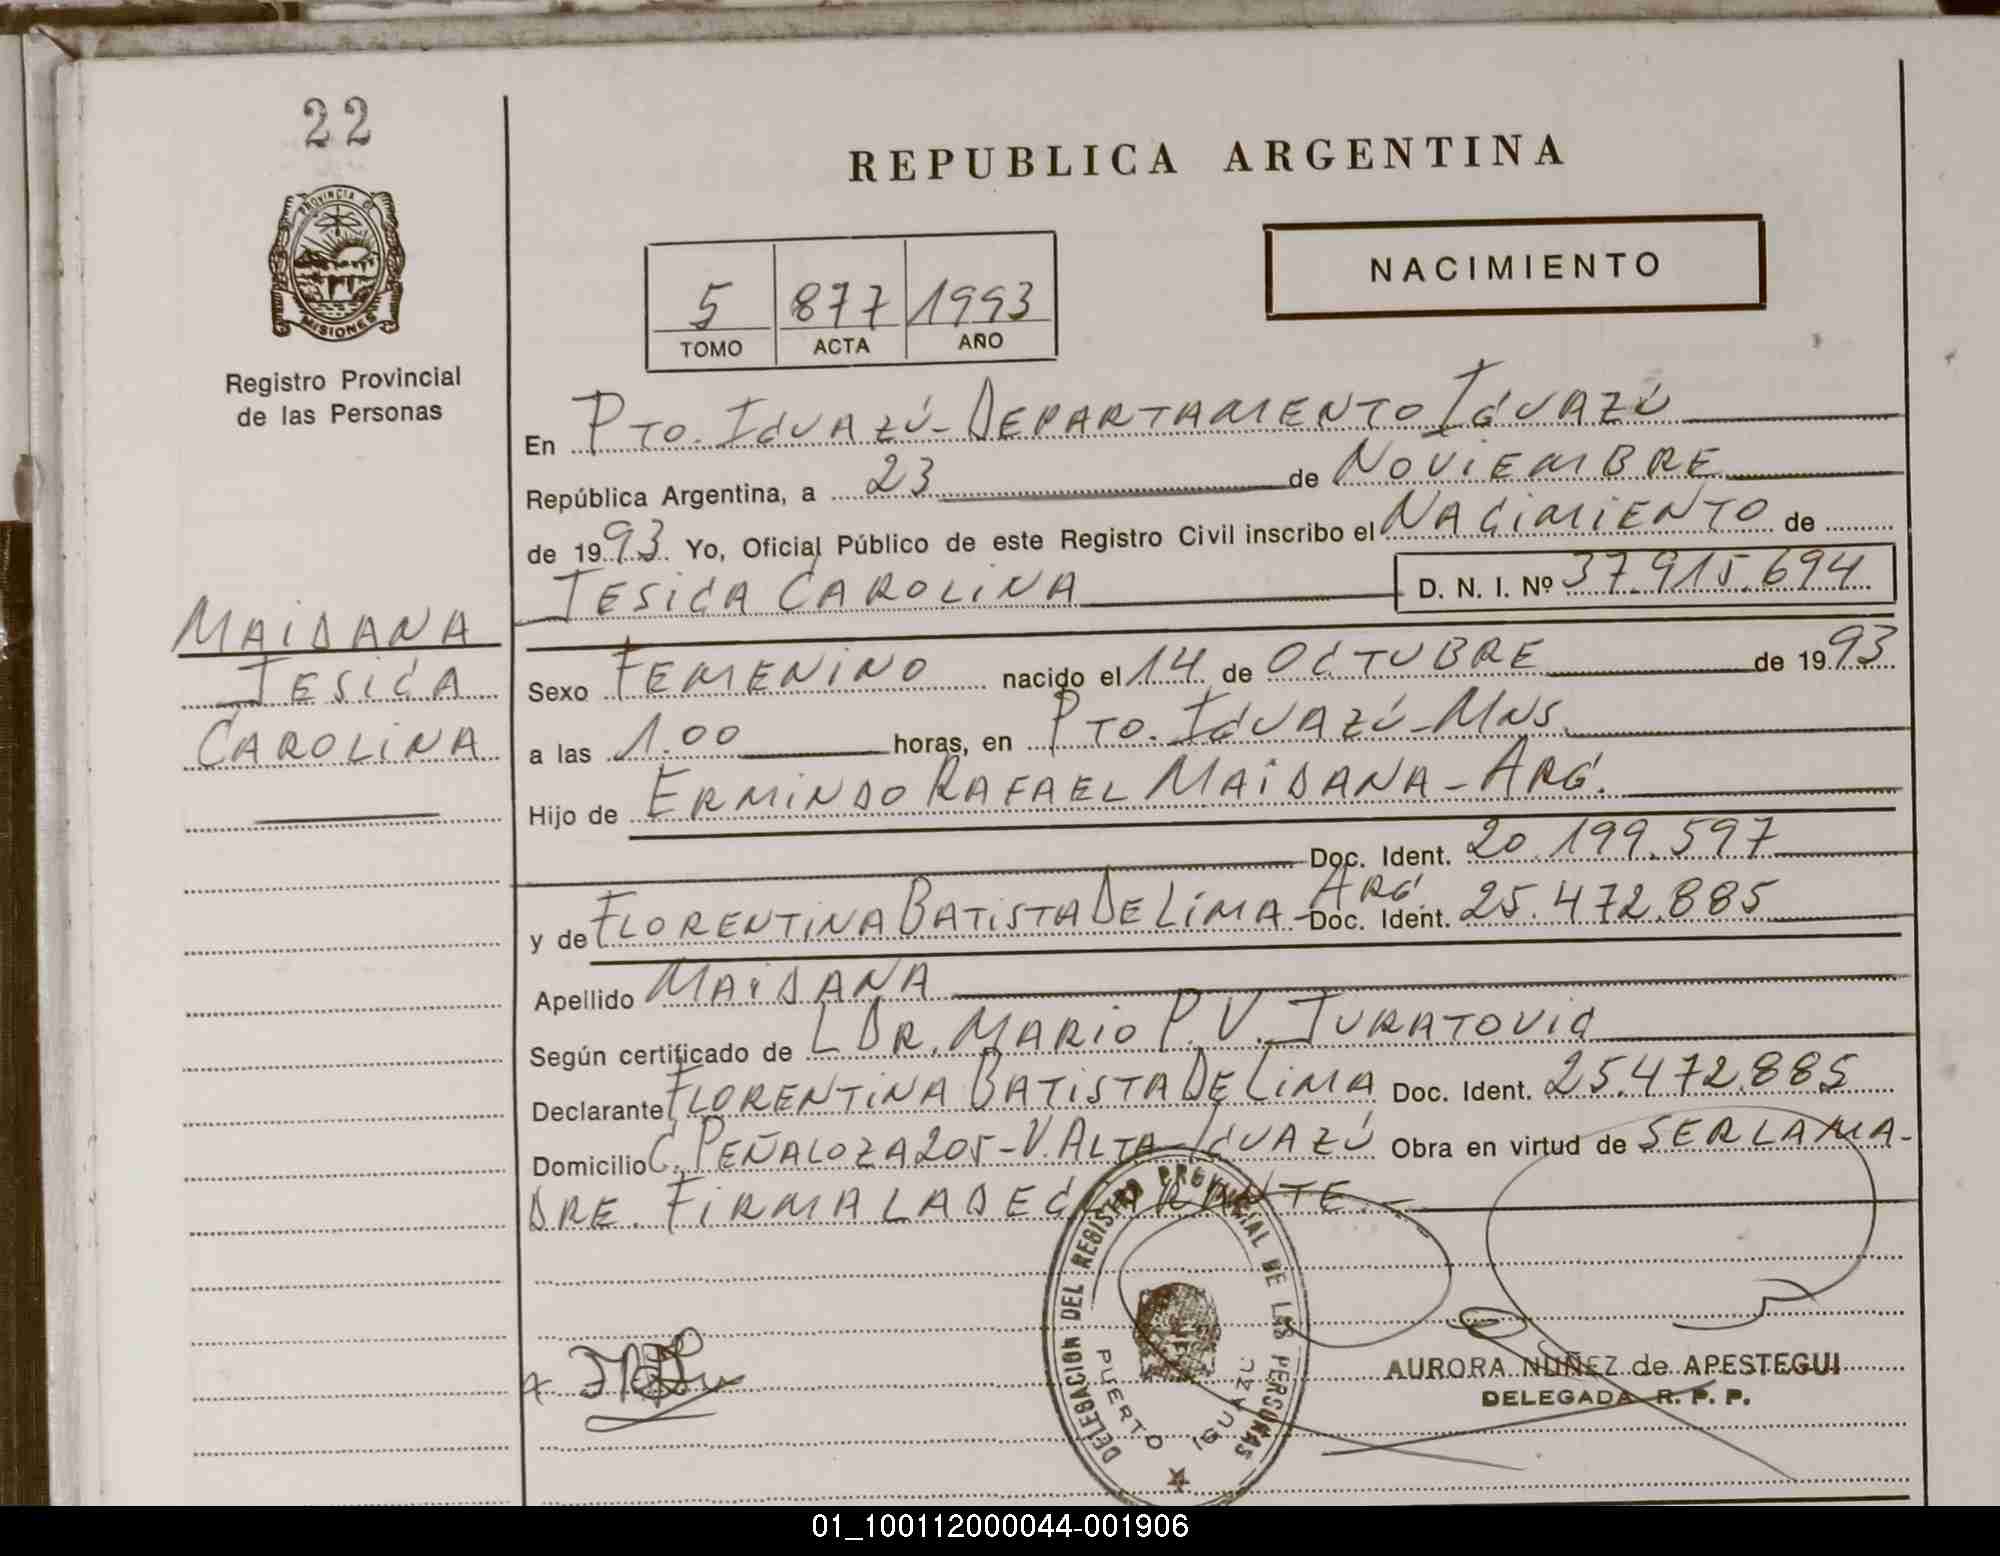 22
PROVINCIA DE
MISIONES
Registro Provincial
de las Personas
MAIDANA
JESICA
CAROLINA
REPUBLICA ARGENTINA
NACIMIENTO
5 877 1993
TOMO ACTA AÑO
En PTO. IGUAZÚ - DEPARTAMENTO IGUAZÚ
República Argentina, a 23 de NOVIEMBRE
de 1993 Yo, Oficial Público de este Registro Civil inscribo el NACIMIENTO de
JESICA CAROLINA D. N. I. Nº 37.915.694
Sexo FEMENINO nacido el 14 de OCTUBRE de 1993
a las 1.00 horas, en PTO. IGUAZÚ - MNS.
Hijo de ERMINDO RAFAEL MAIDANA - ARG.
Doc. Ident. 20.199.597
y de FLORENTINA BATISTA DE LIMA - ARG. Doc. Ident. 25.472.885
Apellido MAIDANA
Según certificado de L DR. MARIO P. V. JURATOVIC
Declarante FLORENTINA BATISTA DE LIMA Doc. Ident. 25.472.885
Domicilio C. PEÑALOZA 205 - V. ALTA - IGUAZÚ Obra en virtud de SER LA MA-
DRE. FIRMA LA DECLARANTE.-
DELEGACION DEL REGISTRO PROVINCIAL DE LAS PERSONAS
PUERTO IGUAZU
AURORA NUÑEZ de APESTEGUI
DELEGADA R. P. P.
01_100112000044-001906